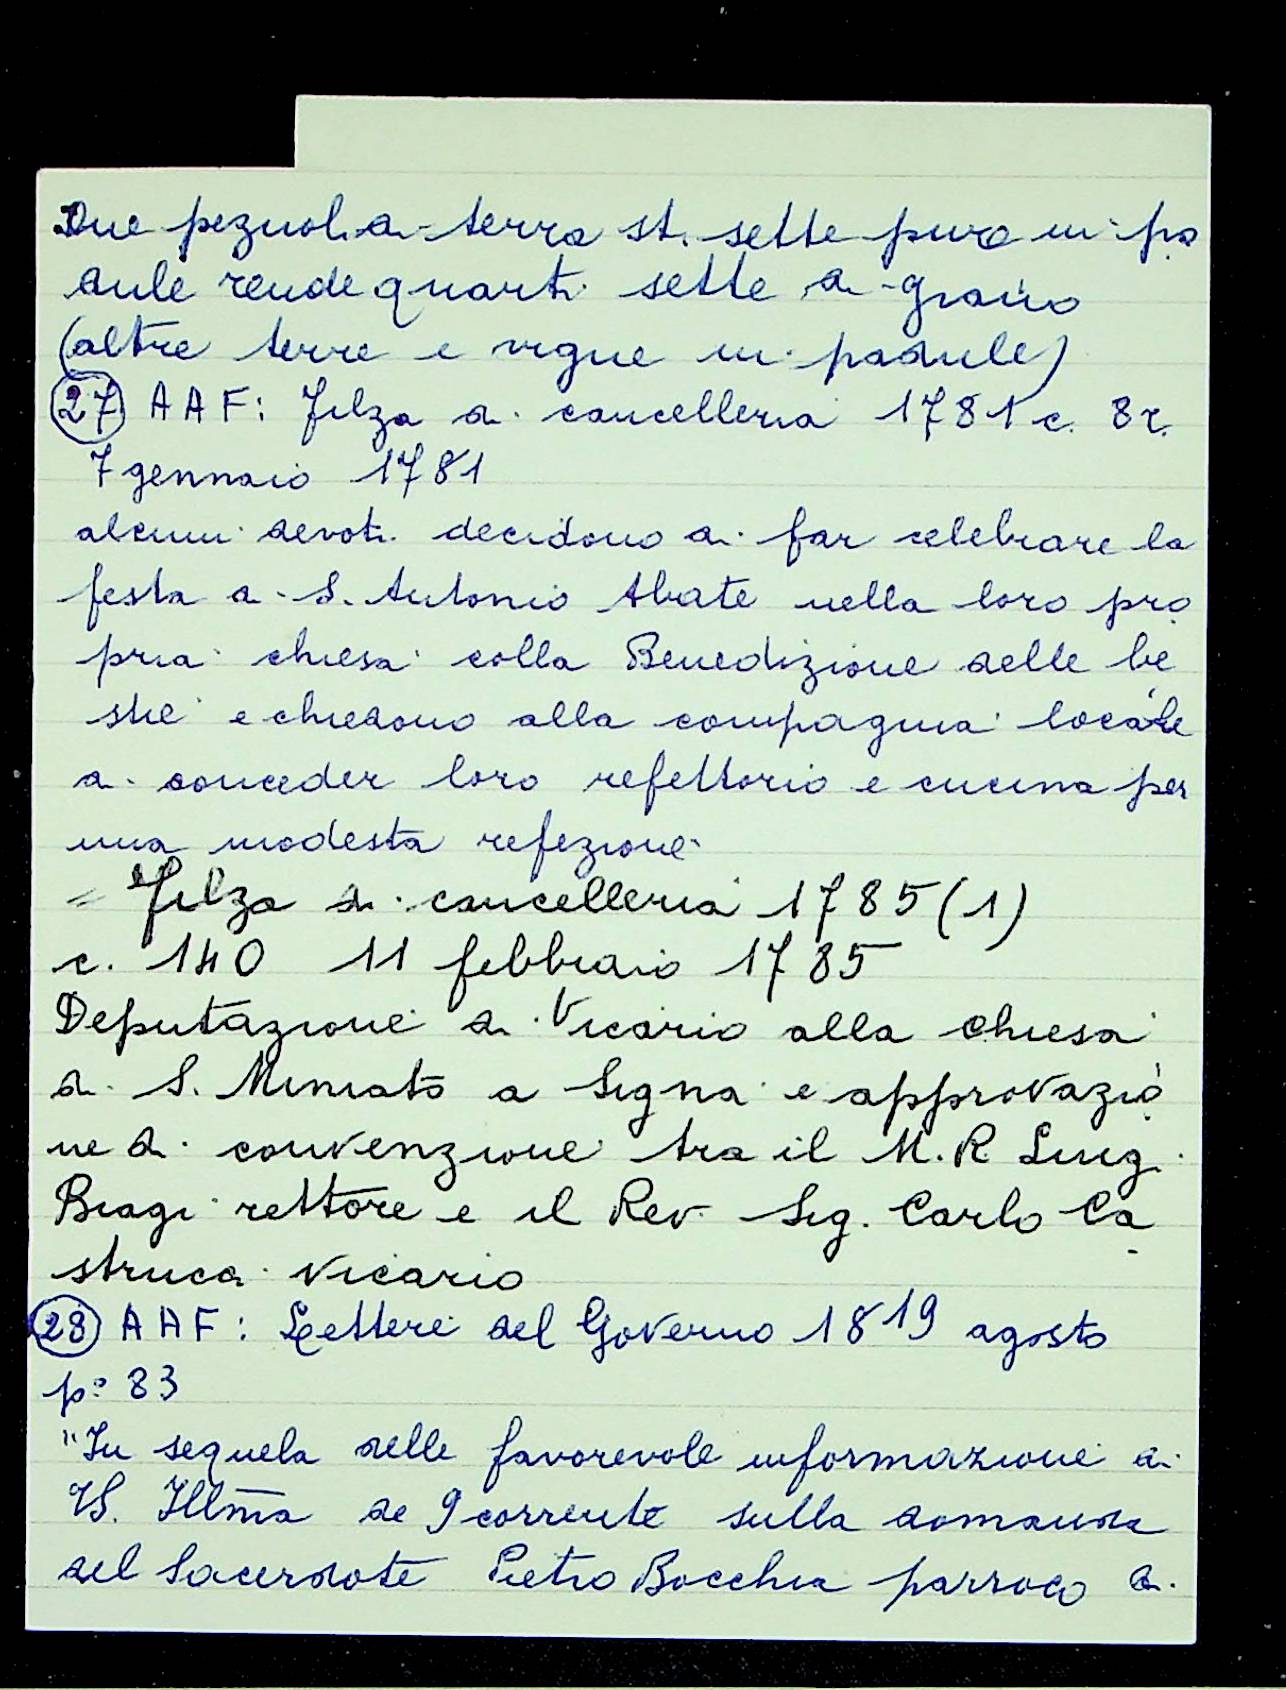 Due pezuoli di terra st. sette pure in pa
dule rende quarti sette di grano
(altre terre e vigne in padule)
27 AAF: Filza di cancelleria 1781 c. 8r.
7 gennaio 1781
alcuni devoti decidono di far celebrare la
festa di S. Antonio Abate nella loro pro
pria chiesa colla Benedizione delle be
stie e chiedono alla compagnia locale
di conceder loro refettorio e cucina per
una modesta refezione
= Filza di cancelleria 1785 (1)
c. 140 11 febbraio 1785
Deputazione di Vicario alla chiesa
di S. Miniato a Signa e approvazio
ne di convenzione tra il M. R Luigi
Biagi rettore e il Rev. Sig. Carlo Ca
struca vicario
28 AAF: Lettere del Governo 1819 agosto
p: 83
"In sequela delle favorevole informazione di
VS. Illma de 9 corrente sulla domanda
del Sacerdote Pietro Bocchia parroco di